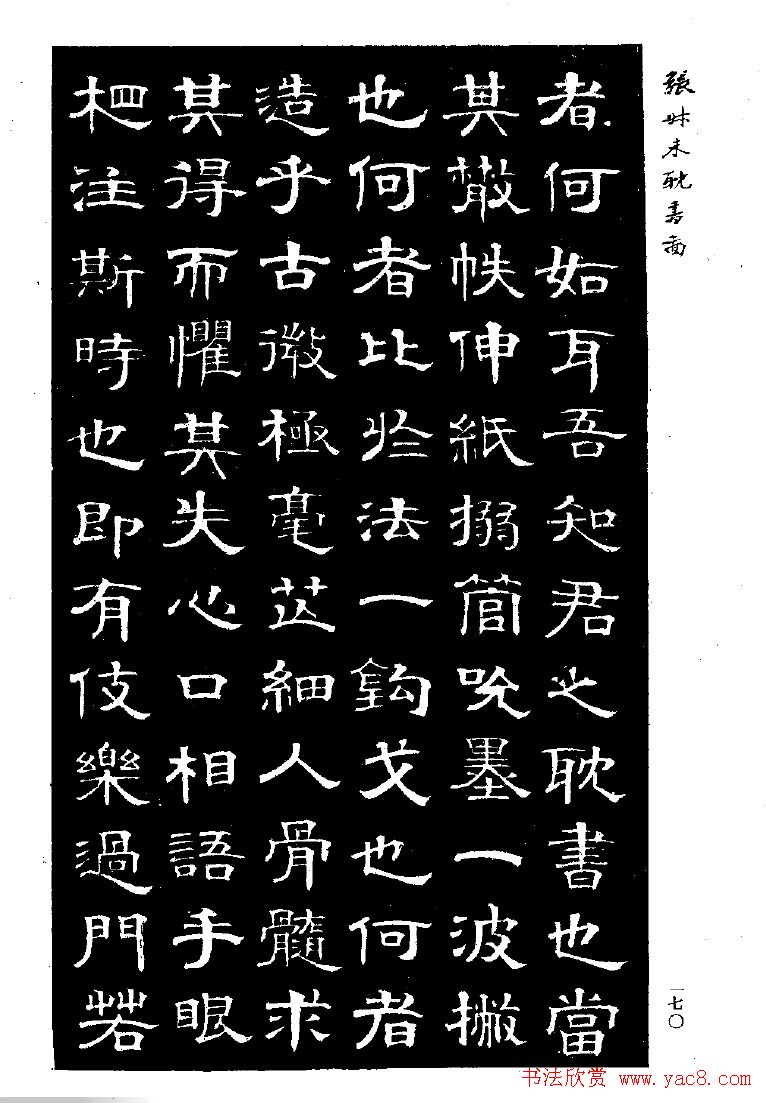 張叔未耽書
者何如耳吾知君之耽書也當
其散帙伸紙搦管吮墨一波撇
也何者比於法一鉤戈也何者
造乎古微極毫芒細人骨髓求
其得而懼其失心口相語手眼
注斯時也即有伎樂過門若
一七〇
书法欣赏 www.yac8.com